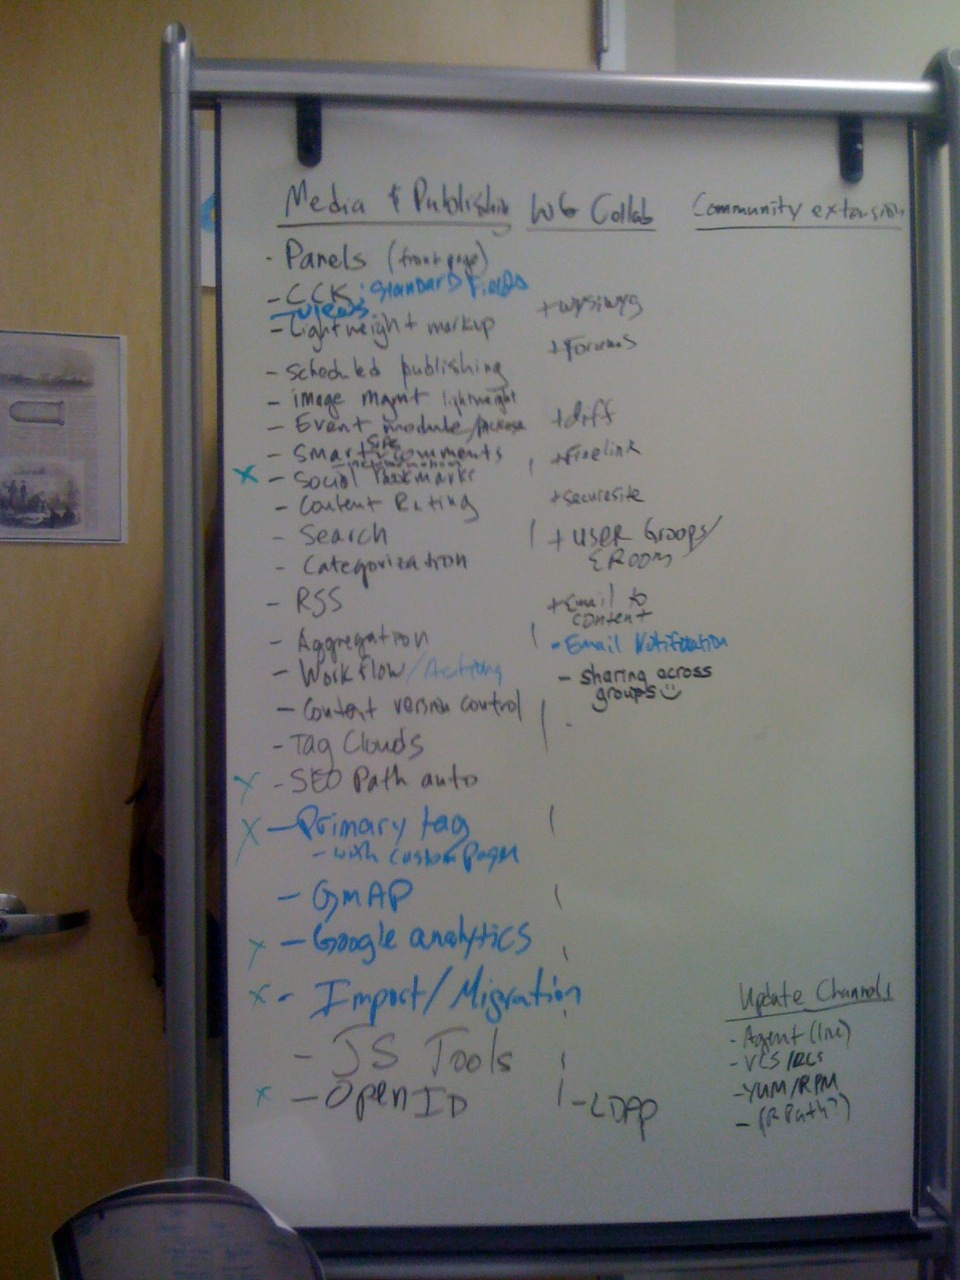 Media & Publishing
- Panels (front page)
- CCK: Standard Fields
- Views
- Lightweight markup
- scheduled publishing
- image mgmt lightweight
- Event module/
- Smart comments
x - Social bookmarks
- Content Rating
- Search
- Categorization
- RSS
- Aggregation
- Workflow/Actions
- Content version control
- Tag Clouds
x - SEO Path auto
x - Primary tag
- with custom pages
- GMAP
x - Google analytics
x - Import/Migration
- JS Tools
x - OpenID
WG Collab
+ wysiwyg
+ Forums
+ diff
+ Freelink
+ securesite
+ USER Groups/
EROOM
+ Email to
content
- Email Notification
- sharing across
groups
- LDAP
Community extension
Update Channels
- Agent (live)
- VCS/RCS
- YUM/RPM
- (RPath?)